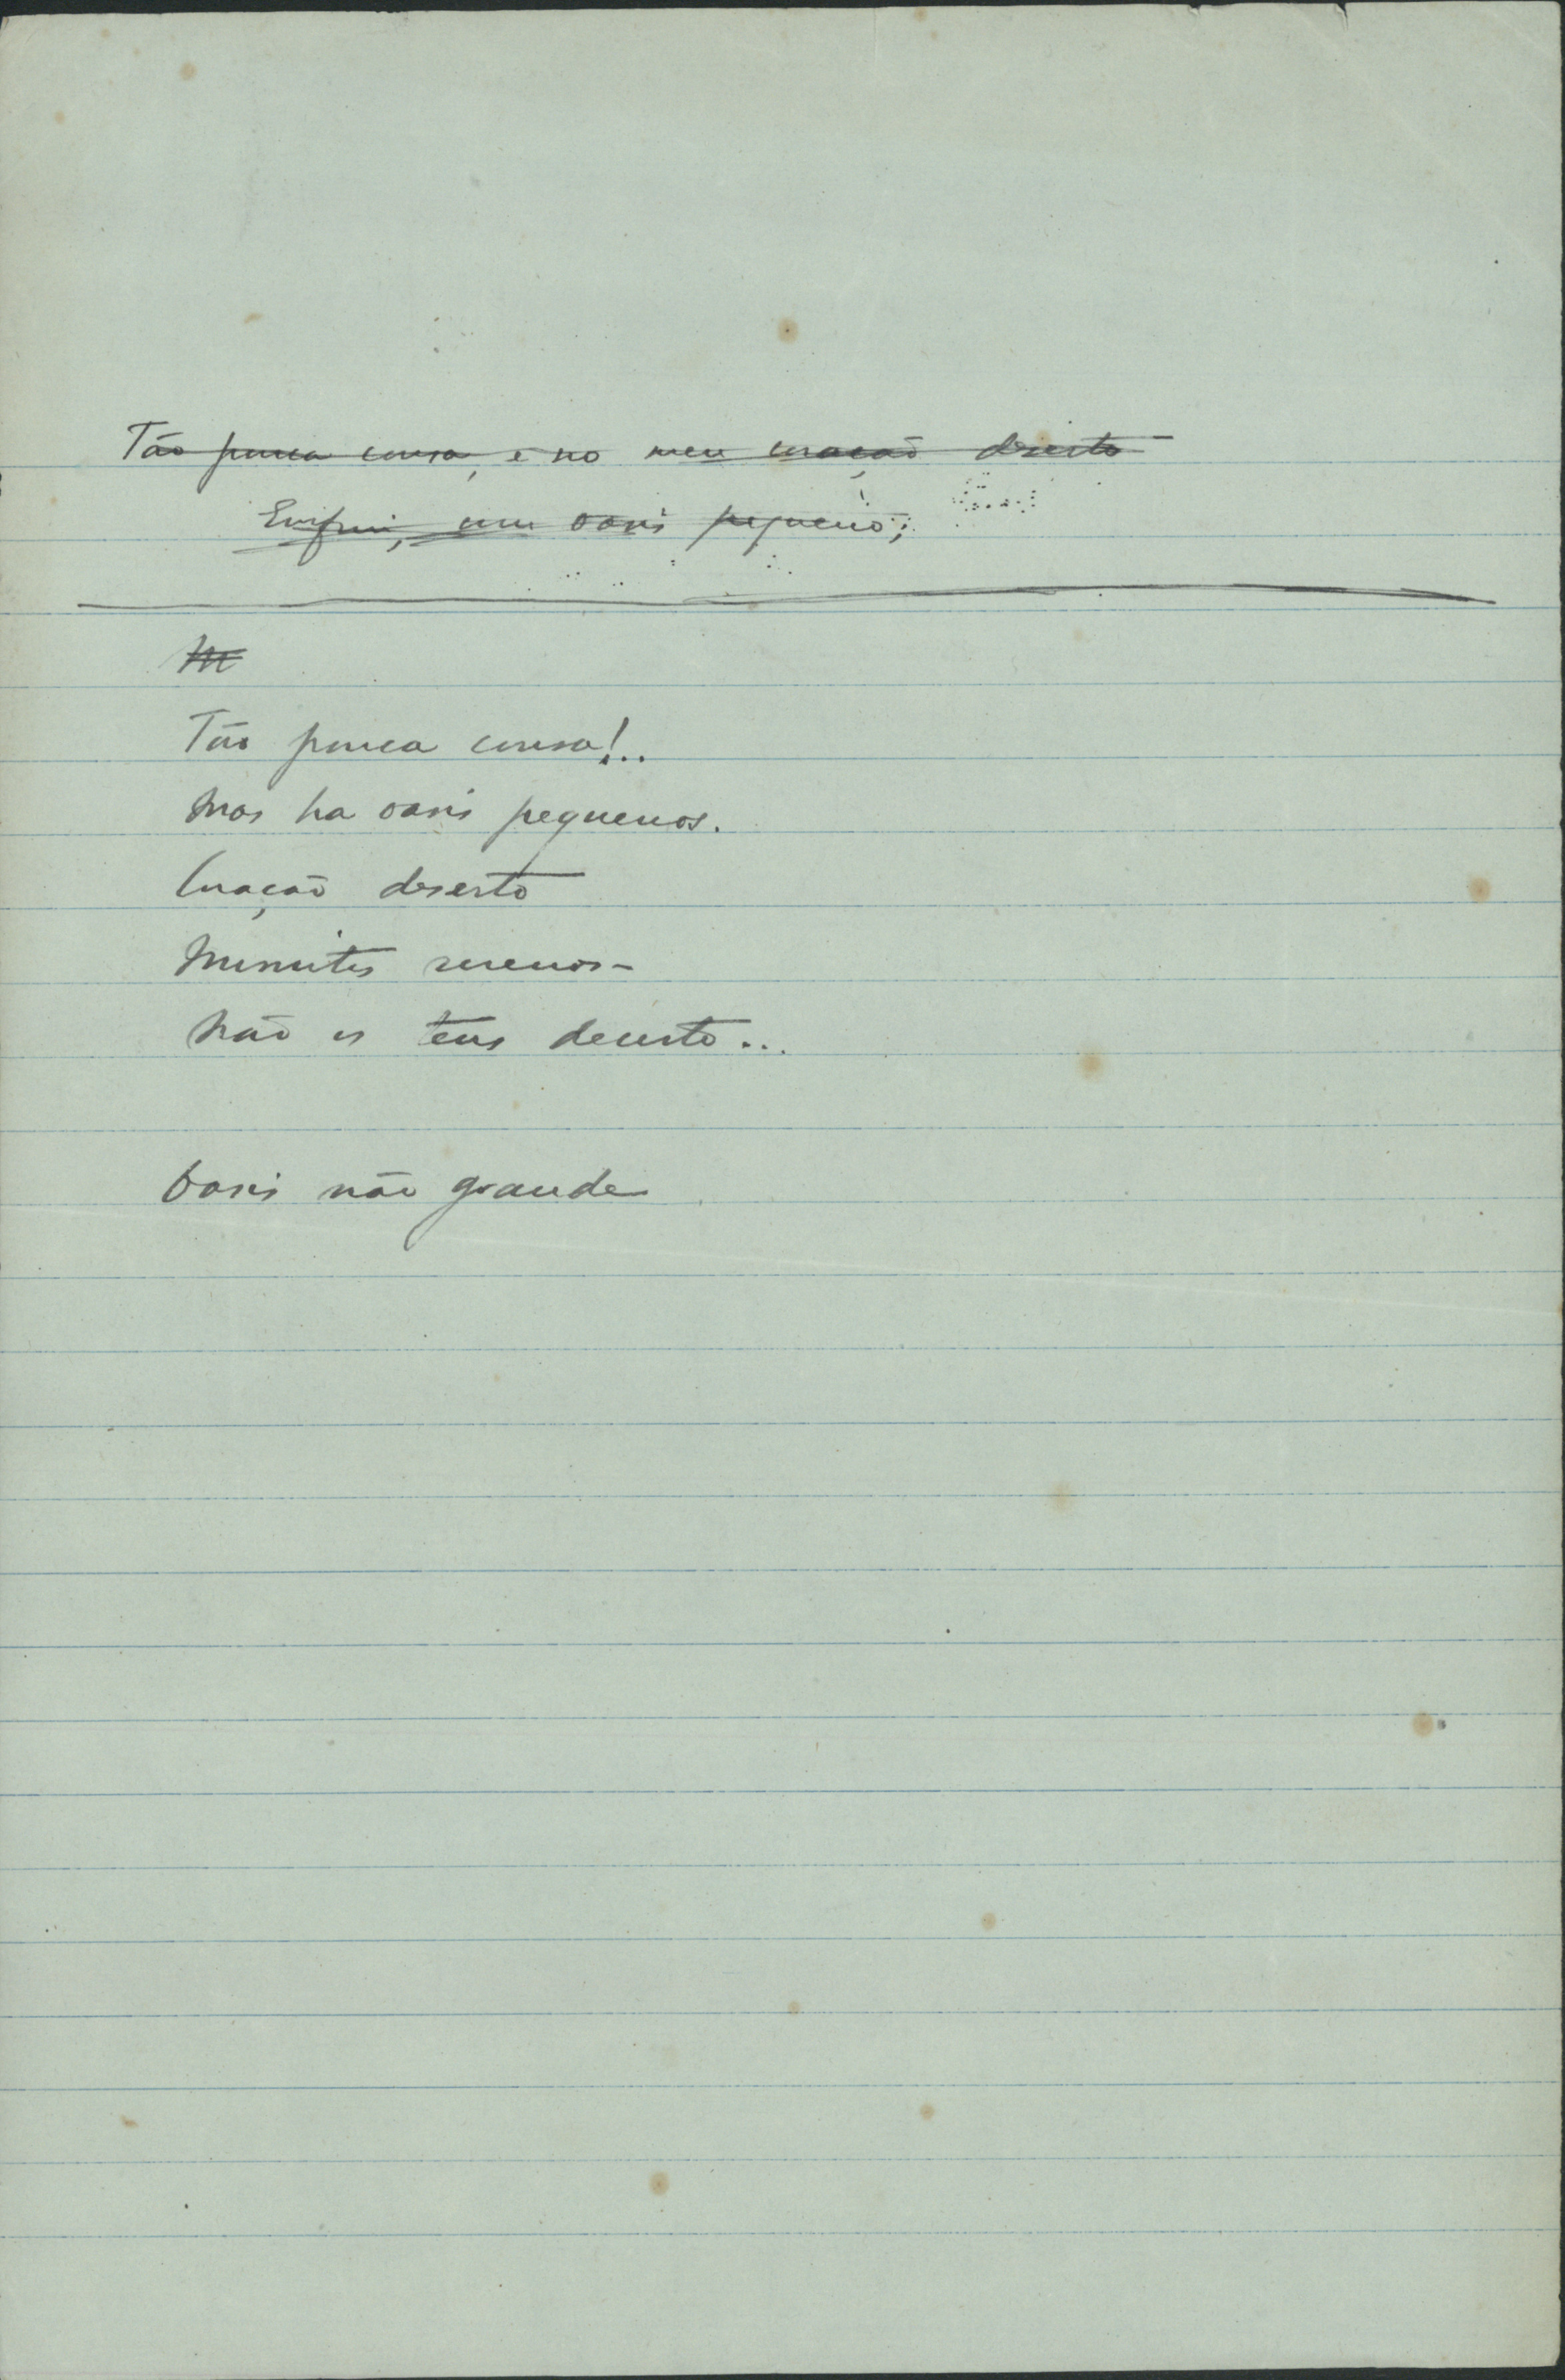 Tão pouca cousa, e no meu coração deserto
Enfim, um oasis pequeno;
M
Tão pouca cousa!..
Mas ha oasis pequenos.
Coração deserto
Minutos serenos –
Não os tens decerto...
Oasis não grande